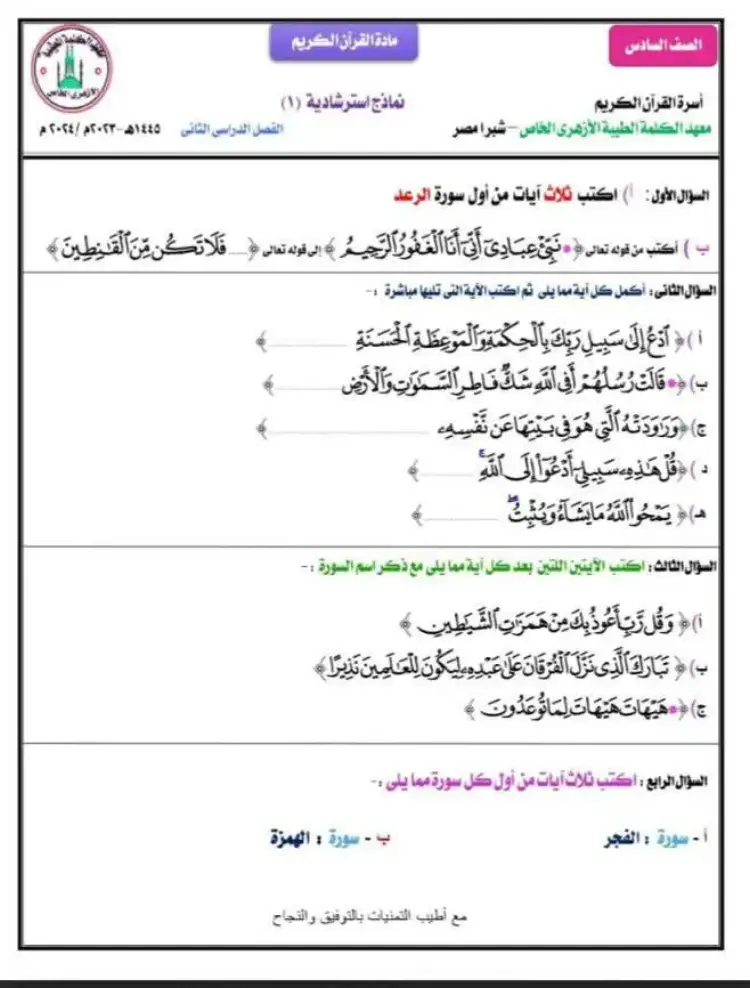 الصف السادس
مادة القرآن الكريم
أسرة القرآن الكريم
نماذج استرشادية (١)
معهد الكلمة الطيبة الأزهرى الخاص – شبرا مصر
الفصل الدراسى الثانى
١٤٤٥هـ -٢٠٢٣م /٢٠٢٤ م
السؤال الأول : أ) اكتب ثلاث آيات من أول سورة الرعد
ب ) أكتب من قوله تعالى ﴿ نَبِّئْ عِبَادِىٓ أَنِّىٓ أَنَا ٱلْغَفُورُ ٱلرَّحِيمُ ﴾ إلى قوله تعالى ﴿ .... فَلَا تَكُن مِّنَ ٱلْقَٰنِطِينَ ﴾
السؤال الثانى : أكمل كل آية مما يلى ثم اكتب الآية التى تليها مباشرة :-
أ ) ﴿ ٱدْعُ إِلَىٰ سَبِيلِ رَبِّكَ بِٱلْحِكْمَةِ وَٱلْمَوْعِظَةِ ٱلْحَسَنَةِ .......... ﴾
ب) ﴿ قَالَتْ رُسُلُهُمْ أَفِى ٱللَّهِ شَكٌّ فَاطِرِ ٱلسَّمَٰوَٰتِ وَٱلْأَرْضِ .......... ﴾
ج) ﴿ وَرَٰوَدَتْهُ ٱلَّتِى هُوَ فِى بَيْتِهَا عَن نَّفْسِهِۦ .......... ﴾
د ) ﴿ قُلْ هَٰذِهِۦ سَبِيلِىٓ أَدْعُوٓا۟ إِلَى ٱللَّهِ ۚ .......... ﴾
هـ) ﴿ يَمْحُوا۟ ٱللَّهُ مَا يَشَآءُ وَيُثْبِتُ ۖ .......... ﴾
السؤال الثالث : اكتب الآيتين اللتين بعد كل آية مما يلى مع ذكر اسم السورة :-
أ ) ﴿ وَقُل رَّبِّ أَعُوذُ بِكَ مِنْ هَمَزَٰتِ ٱلشَّيَٰطِينِ ﴾
ب) ﴿ تَبَارَكَ ٱلَّذِى نَزَّلَ ٱلْفُرْقَانَ عَلَىٰ عَبْدِهِۦ لِيَكُونَ لِلْعَٰلَمِينَ نَذِيرًا ﴾
ج) ﴿ هَيْهَاتَ هَيْهَاتَ لِمَا تُوعَدُونَ ﴾
السؤال الرابع : اكتب ثلاث آيات من أول كل سورة مما يلى :-
أ - سورة : الفجر
ب - سورة : الهمزة
مع أطيب التمنيات بالتوفيق والنجاح